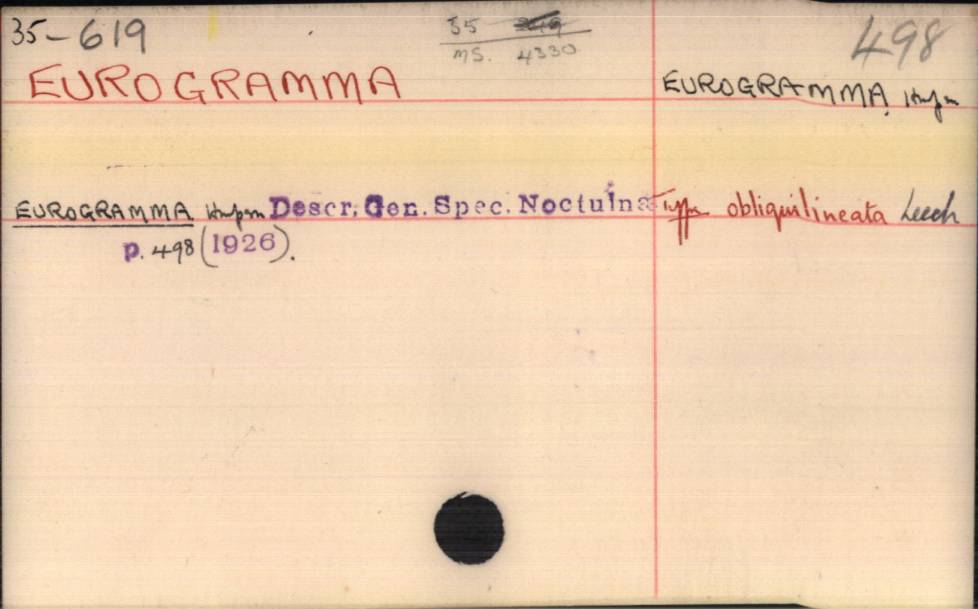 35-619
35
MS. 4330
498
EUROGRAMMA
EUROGRAMMA Hmpsn
EUROGRAMMA Hmpsn Descr. Gen. Spec. Noctuinæ
p. 498 (1926).
Type obliquilineata Leech